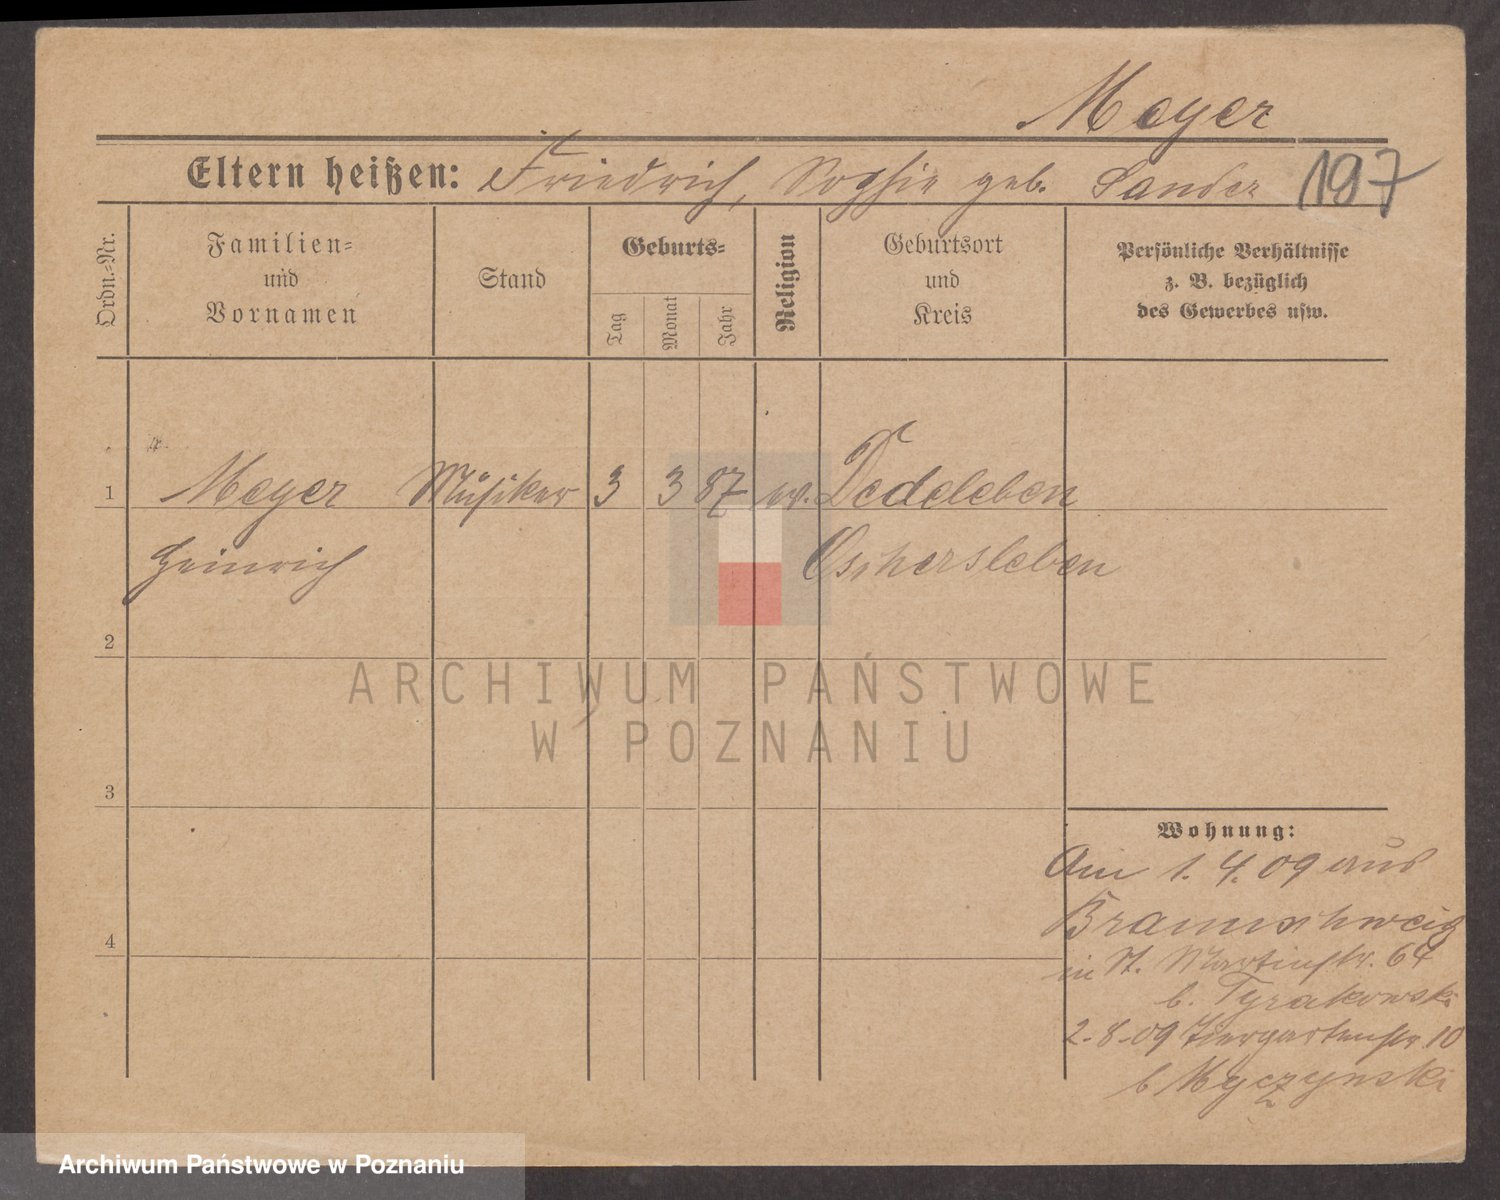 Meyer
Eltern heißen: Friedrich, Sophie geb. Sander 197
Ordn.-Nr.
Familien-
und
Vornamen
Stand
Geburts-
Tag
Monat
Jahr
Religion
Geburtsort
und
Kreis
Persönliche Verhältnisse
z. B. bezüglich
des Gewerbes usw.
1 Meyer Musiker 3 3 87 ev. Dedeleben
Heinrich Oschersleben
2
ARCHIWUM PAŃSTWOWE
W POZNANIU
3
Wohnung:
Am 1. 4. 09 aus
Braunschweig
in St. Martinstr. 64
b. Tyrakowski
4
2.8.09 Tiergartenstr 10
b Myczynski
Archiwum Państwowe w Poznaniu